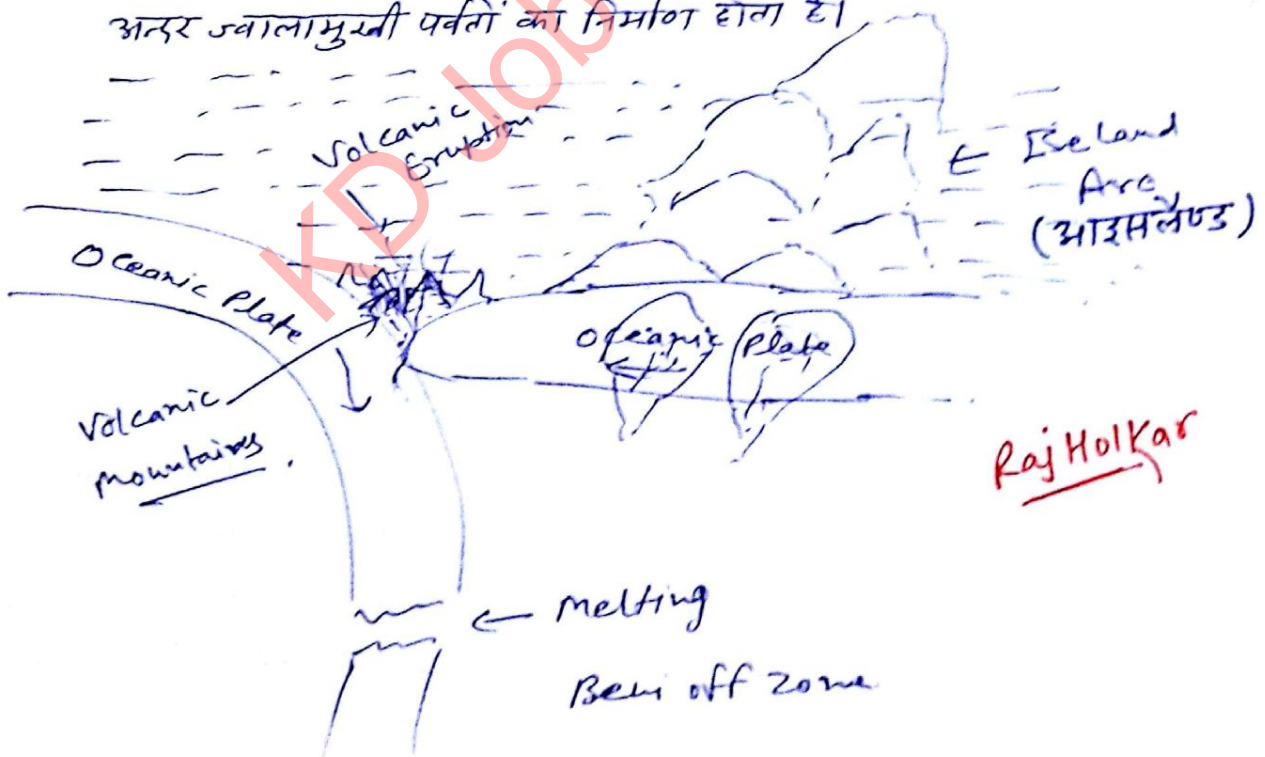 अन्दर ज्वालामुखी पर्वतों का निर्माण होता है।
KD Job
Volcanic
Eruption
Iseland
Arc
(आइसलैण्ड)
Oceanic Plate
Oceanic Plate
Volcanic
Mountains
Raj Holkar
← Melting
Beni off zone